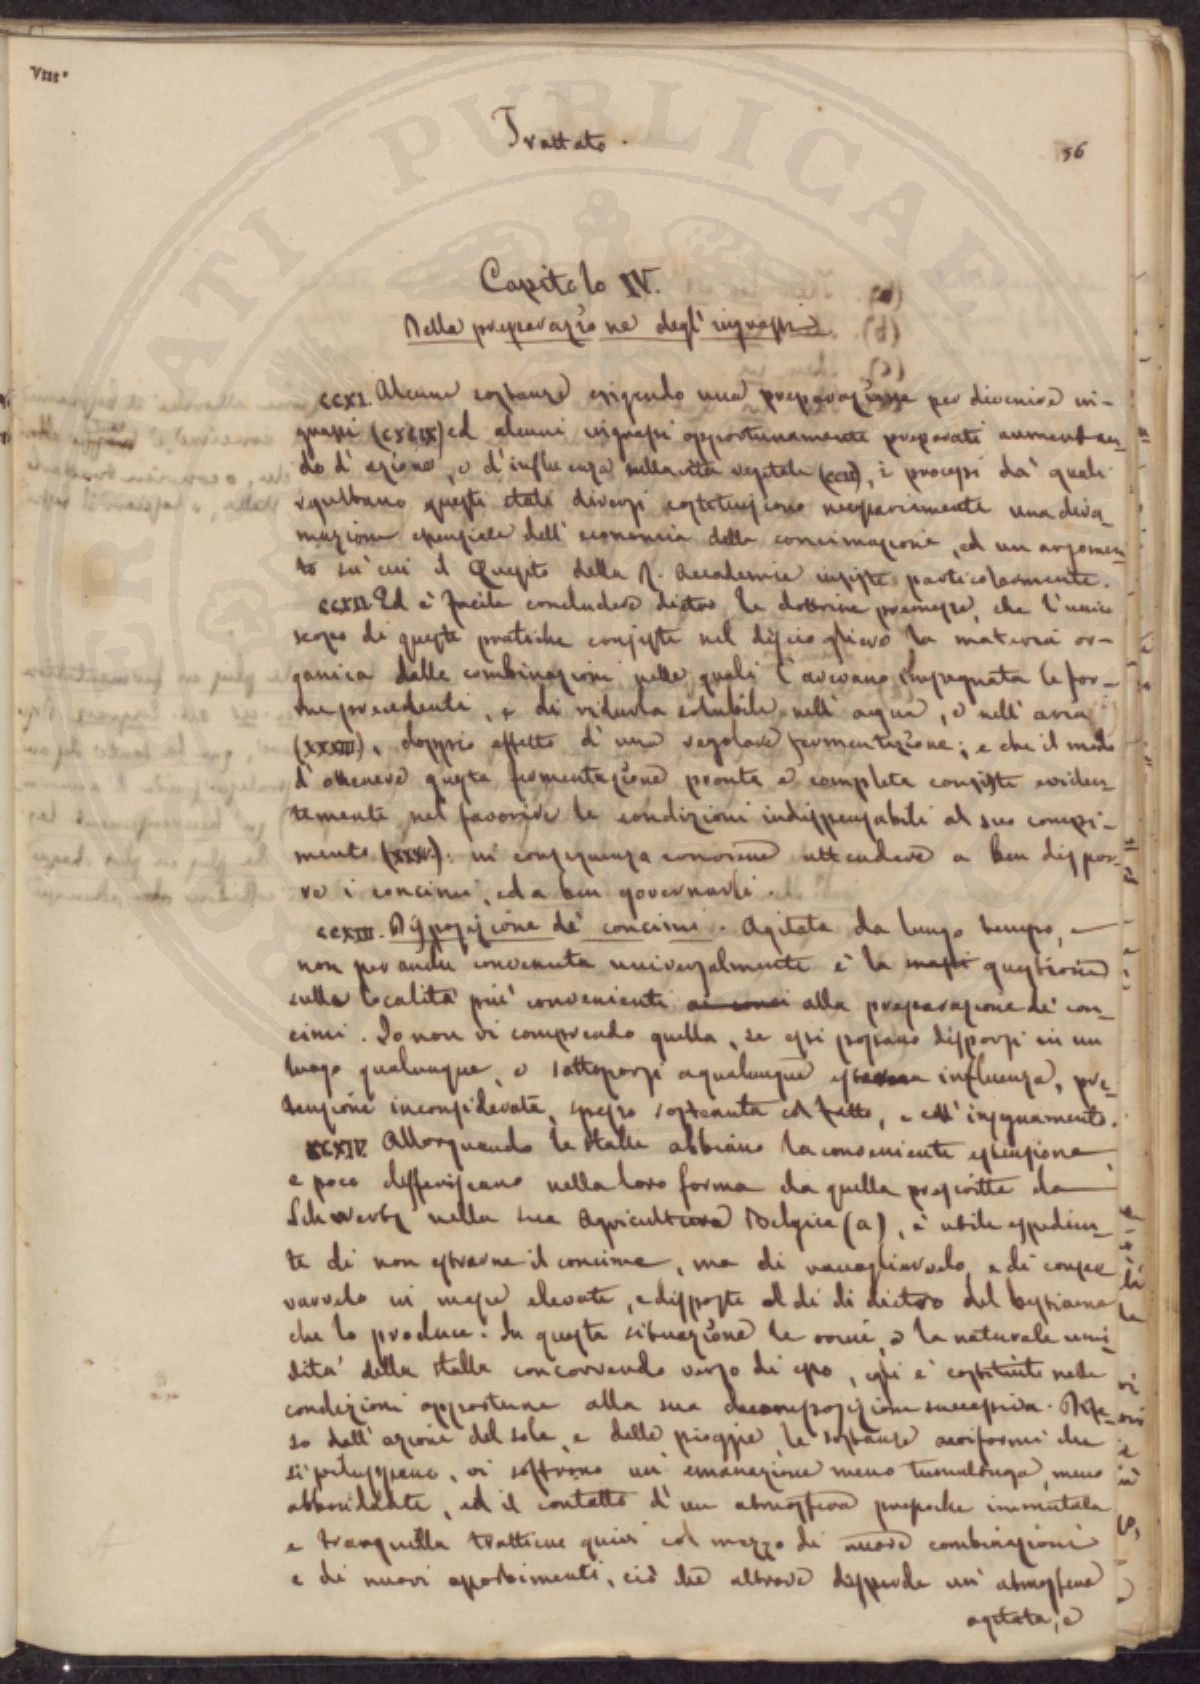 VIII.
Trattato.
56
Capitolo IV.
Della preparazione degl'ingrassi.
CCXI. Alcune sostanze esigendo una preparazione per divenire in-
grassi (CXCIX) ed alcuni ingrassi opportunamente preparati aumentan-
do d'azione, e d'influenza nella vita vegetale (CCIV), i processi da' quali
risultano questi stati diversi costituiscono necessariamente una dira-
mazione essenziale dell'economia della concimazione, ed un argomen-
to su cui il Quesito della R. Accademia insiste particolarmente.
CCXII. Ed è facile concludere dietro le dottrine premesse, che l'unico
scopo di queste pratiche consiste nel disciogliere la materia or-
ganica dalle combinazioni nelle quali l'avevano impegnata le for-
me precedenti, e di ridurla solubile nell'acqua, o nell'aria
(XXXIII), doppio effetto d'una regolare fermentazione; e che il modo
d'ottenere questa fermentazione pronta e completa consiste eviden-
temente nel favorire le condizioni indispensabili al suo compi-
mento (XXXV): in conseguenza conviene attendere a ben dispor-
re i concimi, ed a ben governarli.
CCXIII. Disposizione de' concimi. Agitata da lungo tempo, e
non per anche convenuta universalmente è la questione
sulla località più conveniente alla preparazione de' con-
cimi. Io non vi comprendo quella, se essi possano disporsi in un
luogo qualunque, o sottoporsi a qualunque esterna influenza, pre-
tensione inconsiderata, spesso sostenuta col fatto, e coll'insegnamento.
CCXIV. Allorquando le stalle abbiano la conveniente estensione,
e poco differiscano nella loro forma da quella prescritte da
Schwertz nella sua Agricoltura Belgica (a), è utile espedien-
te di non estrarne il concime, ma di raccogliervelo, e di conser-
varvelo in masse elevate, e disposte al di di dietro del bestiame
che lo produce. In questa situazione le orine, e la naturale umi-
dità della stalla concorrendo verso di esso, egli è costituito nelle
condizioni opportune alla sua decomposizione successiva. Dife-
so dall'azione del sole, e delle pioggie, le sostanze aeriformi che
si sviluppano, vi soffrono un'emanazione meno tumultuosa, meno
abbondante, ed il contatto d'un atmosfera pressoche immutata
e tranquilla trattiene quivi col mezzo di nuove combinazioni
e di nuovi assorbimenti, ciò che altrove disperde un'atmosfera
agitata, e